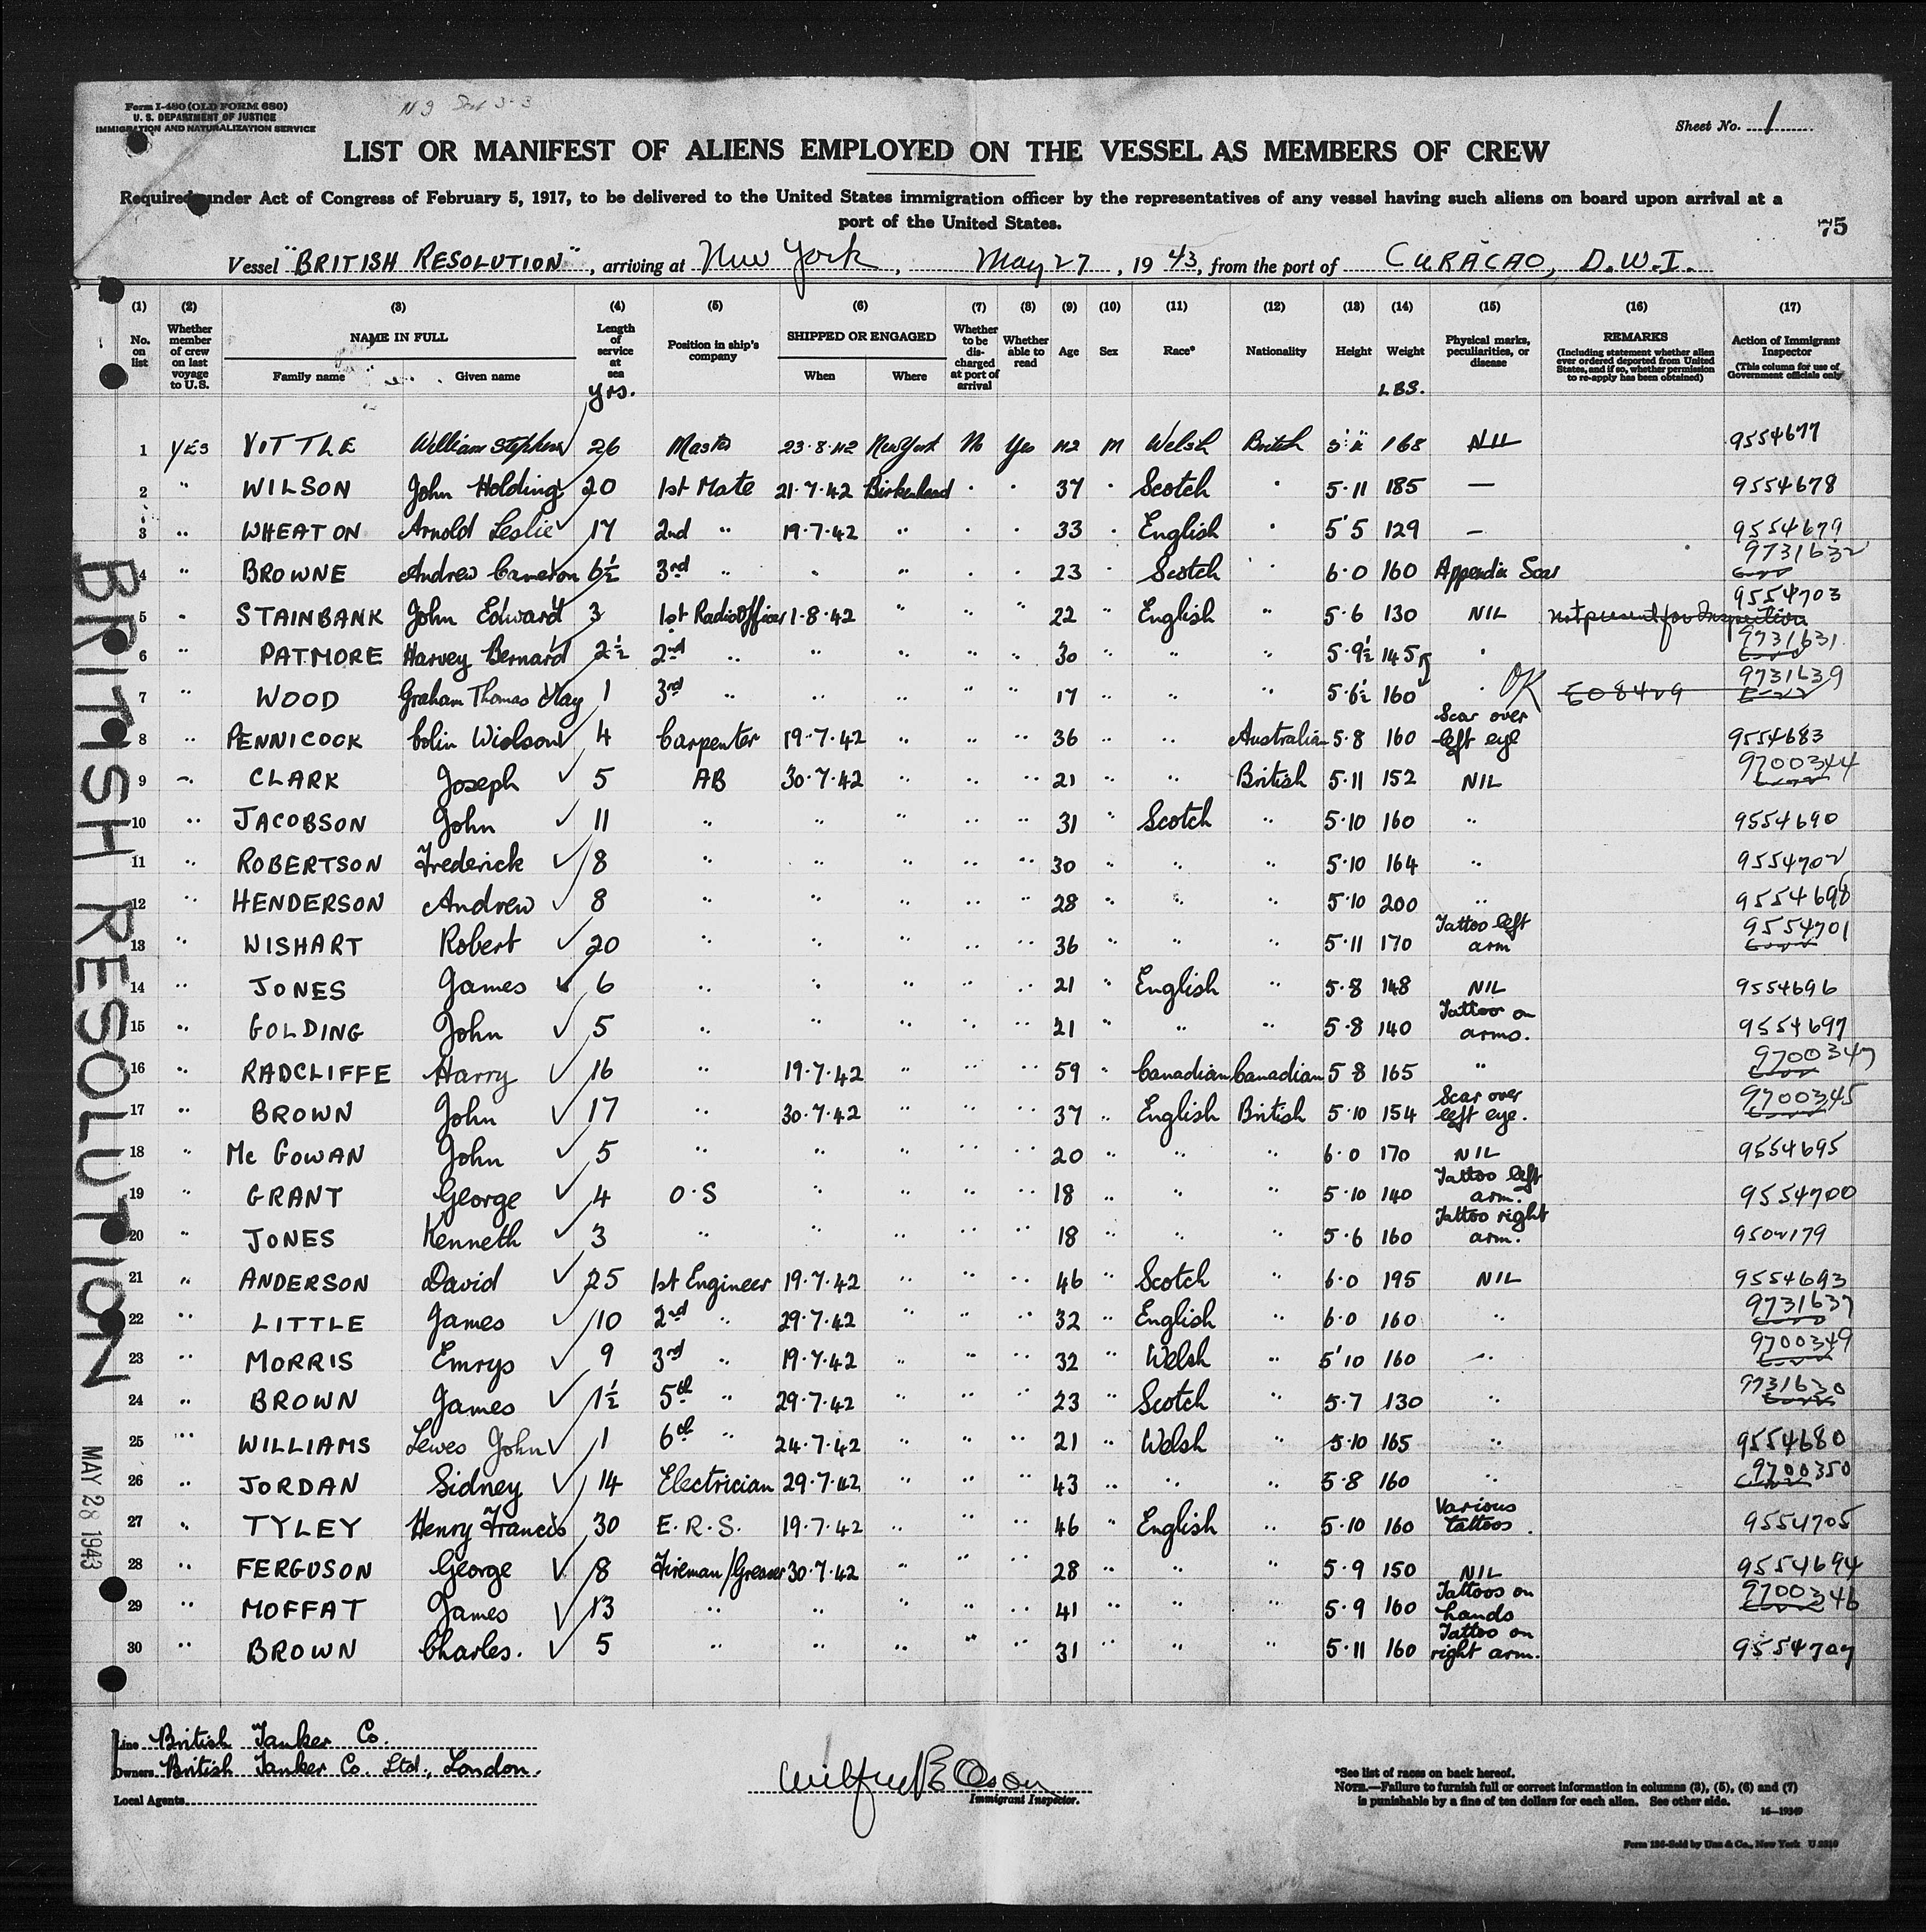 Form I-480 (OLD FORM 680)
U. S. DEPARTMENT OF JUSTICE
IMMIGRATION AND NATURALIZATION SERVICE
Sheet No. 1
LIST OR MANIFEST OF ALIENS EMPLOYED ON THE VESSEL AS MEMBERS OF CREW
Required under Act of Congress of February 5, 1917, to be delivered to the United States immigration officer by the representatives of any vessel having such aliens on board upon arrival at a
port of the United States.
75
Vessel "BRITISH RESOLUTION", arriving at New York, May 27, 1943, from the port of CURAÇAO, D.W.I.
(1) (2) (3) (4) (5) (6) (7) (8) (9) (10) (11) (12) (13) (14) (15) (16) (17)
No. on list | Whether member of crew on last voyage to U.S. | NAME IN FULL Family name Given name | Length of service at sea yrs. | Position in ship's company | SHIPPED OR ENGAGED When Where | Whether to be discharged at port of arrival | Whether able to read | Age | Sex | Race* | Nationality | Height | Weight LBS. | Physical marks, peculiarities, or disease | REMARKS (Including statement whether alien ever ordered deported from United States, and if so, whether permission to re-apply has been obtained) | Action of Immigrant Inspector (This column for use of Government officials only)
1 YES VITTLE William Stephen 26 Master 23-8-42 New York No Yes 42 M Welsh British 168 NIL 9554677
2 " WILSON John Holding 20 1st Mate 21.7.42 Birkenhead " " 37 " Scotch " 5.11 185 — 9554678
3 " WHEATON Arnold Leslie 17 2nd " 19.7.42 " " " 33 " English " 5'5 129 — 9554679
4 " BROWNE Andrew Cameron 6½ 3rd " " " " " 23 " Scotch " 6.0 160 Appendix Scar 9731632
5 " STAINBANK John Edward 3 1st Radio Officer 1-8-42 " " " 22 " English " 5.6 130 NIL not present for Inspection 9554703
6 " PATMORE Harvey Bernard 2½ 2nd " " " " " 30 " " " 5.9½ 145 " 9731631
7 " WOOD Graham Thomas Hay 1 3rd " " " " " 17 " " " 5.6½ 160 " OK E08429 9731639
8 " PENNICOCK Colin Widson 4 Carpenter 19.7.42 " " " 36 " " Australian 5.8 160 Scar over left eye 9554683
9 " CLARK Joseph 5 AB 30.7.42 " " " 21 " " British 5.11 152 NIL 9700344
10 " JACOBSON John 11 " " " " " 31 " Scotch " 5.10 160 " 9554690
11 " ROBERTSON Frederick 8 " " " " " 30 " " " 5.10 164 " 9554702
12 " HENDERSON Andrew 8 " " " " " 28 " " " 5.10 200 " 9554698
13 " WISHART Robert 20 " " " " " 36 " " " 5.11 170 Tattoo left arm 9554701
14 " JONES James 6 " " " " " 21 " English " 5.8 148 NIL 9554696
15 " GOLDING John 5 " " " " " 21 " " " 5.8 140 Tattoo on arms. 9554697
16 " RADCLIFFE Harry 16 " 19.7.42 " " " 59 " Canadian Canadian 5 8 165 " 9700347
17 " BROWN John 17 " 30.7.42 " " " 37 " English British 5.10 154 Scar over left eye. 9700345
18 " Mc GOWAN John 5 " " " " " 20 " " " 6.0 170 NIL 9554695
19 " GRANT George 4 O.S " " " " 18 " " " 5.10 140 Tattoo left arm. 9554700
20 " JONES Kenneth 3 " " " " " 18 " " " 5.6 160 Tattoo right arm. 9502179
21 " ANDERSON David 25 1st Engineer 19.7.42 " " " 46 " Scotch " 6.0 195 NIL 9554693
22 " LITTLE James 10 2nd " 29.7.42 " " " 32 " English " 6.0 160 " 9731637
23 " MORRIS Emrys 9 3rd " 19.7.42 " " " 32 " Welsh " 5'10 160 " 9700349
24 " BROWN James 1½ 5th " 29.7.42 " " " 23 " Scotch " 5.7 130 " 9731630
25 " WILLIAMS Lewes John 1 6th " 24.7.42 " " " 21 " Welsh " 5.10 165 " 9554680
26 " JORDAN Sidney 14 Electrician 29.7.42 " " " 43 " " " 5.8 160 " 9700350
27 " TYLEY Henry Francis 30 E.R.S. 19.7.42 " " " 46 " English " 5.10 160 Various tattoos. 9554705
28 " FERGUSON George 8 Fireman/Greaser 30.7.42 " " " 28 " " " 5.9 150 NIL 9554694
29 " MOFFAT James 13 " " " " " 41 " " " 5.9 160 Tattoos on hands 9700346
30 " BROWN Charles. 5 " " " " " 31 " " " 5.11 160 Tattoo on right arm. 9554707
BRITISH RESOLUTION
MAY 28 1943
Line British Tanker Co.
Owners British Tanker Co. Ltd., London.
Local Agents
Immigrant Inspector.
*See list of races on back hereof.
NOTE.—Failure to furnish full or correct information in columns (3), (5), (6) and (7)
is punishable by a fine of ten dollars for each alien. See other side.
16—19349
Form 136-Sold by Unz & Co., New York U 2310